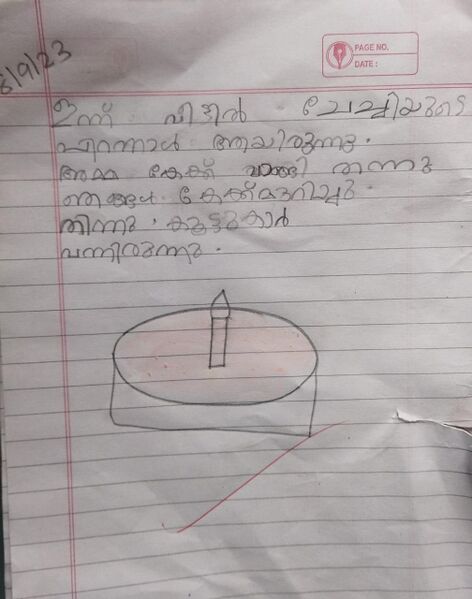 8/9/23
PAGE NO.
DATE :
ഇന്ന് വീട്ടിൽ ചേച്ചിയുടെ
പിറന്നാൾ ആയിരുന്നു.
അമ്മ കേക്ക് വാങ്ങി തന്നു
ഞങ്ങൾ കേക്ക് മുറിച്ചു.
തിന്നു. കൂട്ടുകാർ
വന്നിരുന്നു.